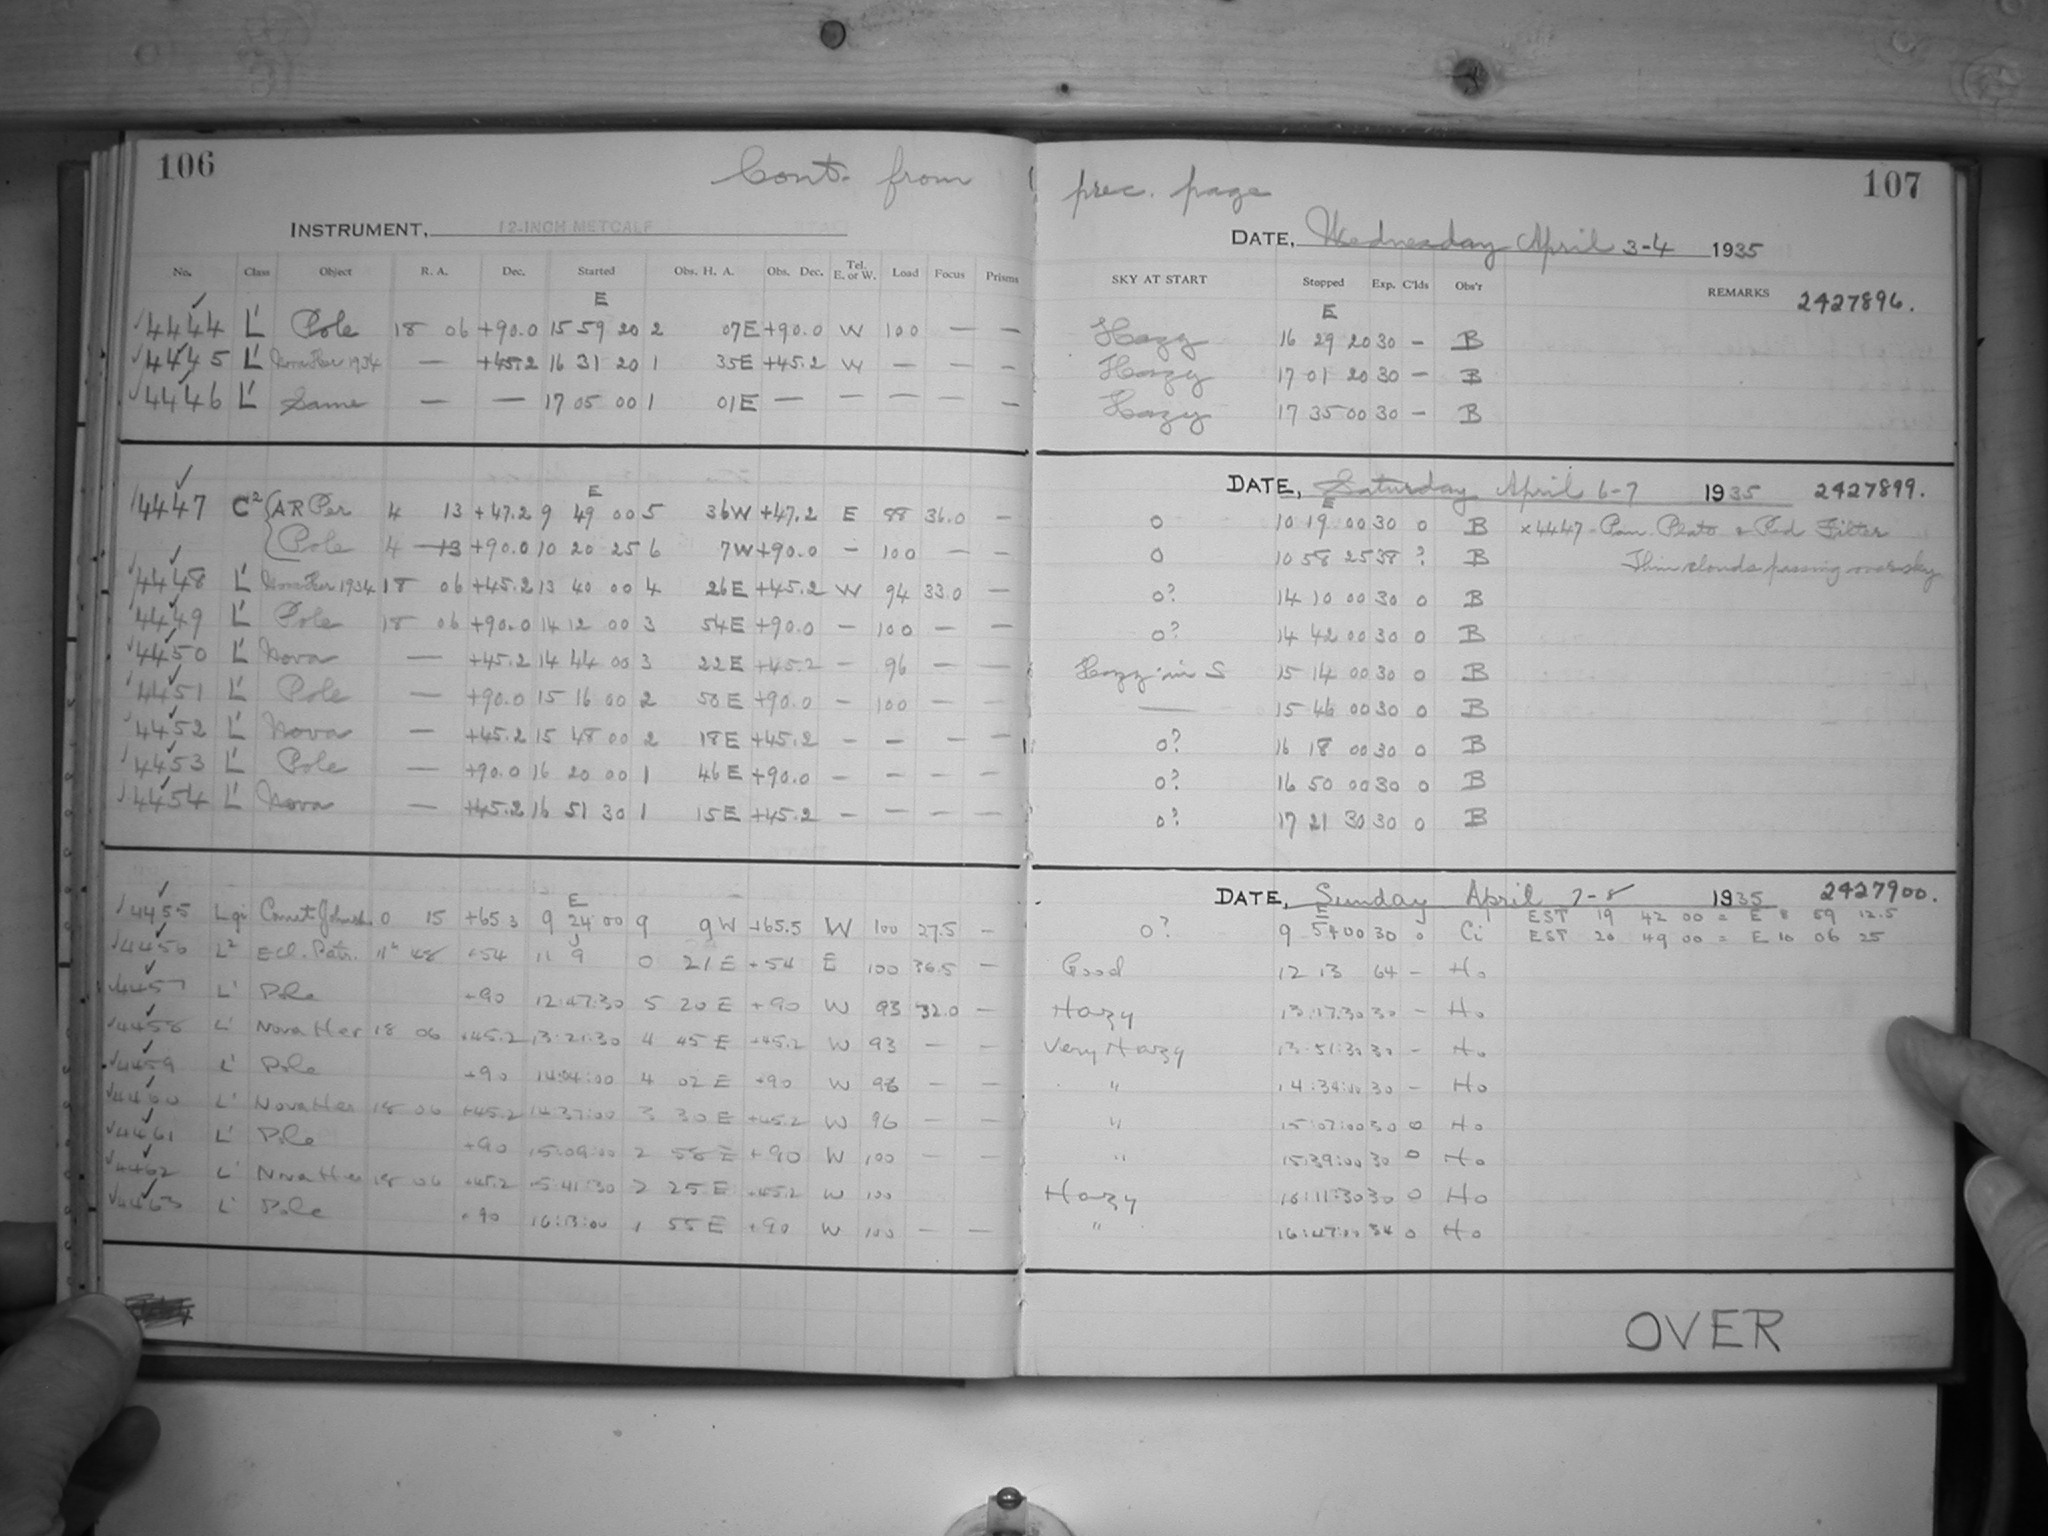 106
Cont. from
INSTRUMENT, 12-INCH METCALF
No. Class Object R. A. Dec. Started Obs. H. A. Obs. Dec. Tel. E. or W. Load Focus Prisms
E
✓4444 L' Pole 18 06 +90.0 15 59 20 2 07E +90.0 W 100 — —
✓4445 L' Nova Her 1934 — +45.2 16 31 20 1 35E +45.2 W — — —
✓4446 L' Same — — 17 05 00 1 01E — — — — —
E
4447 C² {AR Per 4 13 +47.2 9 49 00 5 36W +47.2 E 88 36.0 —
{Pole 4 13 +90.0 10 20 25 6 7W +90.0 — 100 — —
4448 L' Nova Her 1934 18 06 +45.2 13 40 00 4 26E +45.2 W 94 33.0 —
4449 L' Pole 18 06 +90.0 14 12 00 3 54E +90.0 — 100 — —
4450 L' Nova — +45.2 14 44 00 3 22E +45.2 — 96 — —
4451 L' Pole — +90.0 15 16 00 2 50E +90.0 — 100 — —
4452 L' Nova — +45.2 15 48 00 2 18E +45.2 — — — —
4453 L' Pole — +90.0 16 20 00 1 46E +90.0 — — — —
4454 L' Nova — +45.2 16 51 30 1 15E +45.2 — — — —
E
✓4455 Lgi Comet 0 15 +65.3 9 24 00 9 9W +65.5 W 100 27.5 —
✓4456 L² Ecl. Patr. 11h 48 +54 11 9 0 21E +54 E 100 36.5 —
4457 L' Pole +90 12:47:30 5 20E +90 W 93 32.0 —
✓4458 L' Nova Her 18 06 +45.2 13:21:30 4 45E +45.2 W 93 — —
✓4459 L' Pole +90 14:04:00 4 02E +90 W 96 — —
✓4460 L' Nova Her 18 06 +45.2 14:37:00 3 30E +45.2 W 96 — —
✓4461 L' Pole +90 15:09:00 2 58E +90 W 100 — —
✓4462 L' Nova Her 18 06 +45.2 15:41:30 2 25E +45.2 W 100
✓4463 L' Pole +90 16:13:00 1 55E +90 W 100 — —
107
prec. page
DATE, Wednesday April 3-4 1935
SKY AT START Stopped Exp. C'lds Obs'r REMARKS 2427896.
E
Hazy 16 29 20 30 — B
Hazy 17 01 20 30 — B
Hazy 17 35 00 30 — B
DATE, Saturday April 6-7 1935 2427899.
E
0 10 19 00 30 0 B ×4447 - Pan. Plate & Red Filter
0 10 58 25 38 ? B Thin clouds passing over sky
0? 14 10 00 30 0 B
0? 14 42 00 30 0 B
Hazy in S 15 14 00 30 0 B
— 15 46 00 30 0 B
0? 16 18 00 30 0 B
0? 16 50 00 30 0 B
0? 17 21 30 30 0 B
DATE, Sunday April 7-8 1935 2427900.
E EST 19 42 00 = E 8 59 12.5
0? 9 54 00 30 0 Ci EST 20 49 00 = E 10 06 25
Good 12 13 64 — Ho
Hazy 13:17:30 30 — Ho
Very Hazy 13:51:30 30 — Ho
" 14:34:00 30 — Ho
" 15:07:00 30 0 Ho
" 15:39:00 30 0 Ho
Hazy 16:11:30 30 0 Ho
" 16:47:00 34 0 Ho
OVER